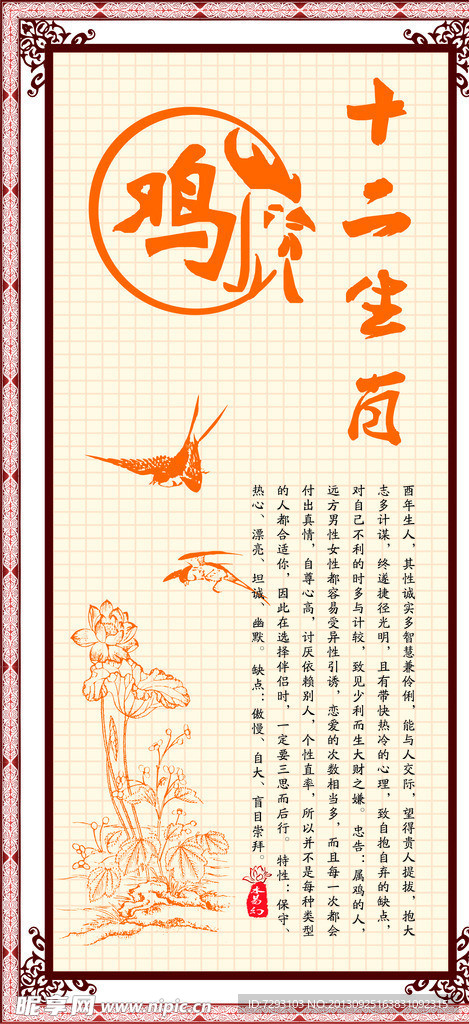 十二生肖
鸡
酉年生人，其性诚实多智慧兼伶俐，能与人交际，望得贵人提拔，抱大
志多计谋，终遂捷径光明，且有带快热冷的心理，致自抱自弃的缺点，
对自己不利的时多与计较，致见少利而生大财之嫌。忠告：属鸡的人，
远方男性女性都容易受异性引诱，恋爱的次数相当多，而且每一次都会
付出真情，自尊心高，讨厌依赖别人，个性直率，所以并不是每种类型
的人都合适你，因此在选择伴侣时，一定要三思而后行。特性：保守、
热心、漂亮、坦诚、幽默。缺点：傲慢、自大、盲目崇拜。
昵享网 www.nipic.cn
ID:7293103 NO.20130925163831092315